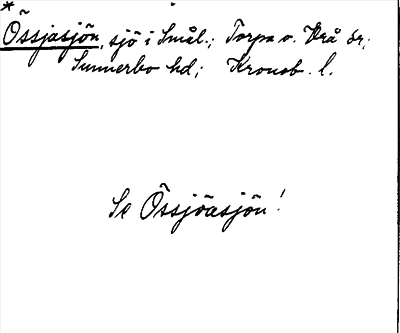 *
Össjasjön, sjö i Smål.; Torpa o. Vrå sr;
Sunnerbo hd; Kronob. l.
Se Össjöasjön!